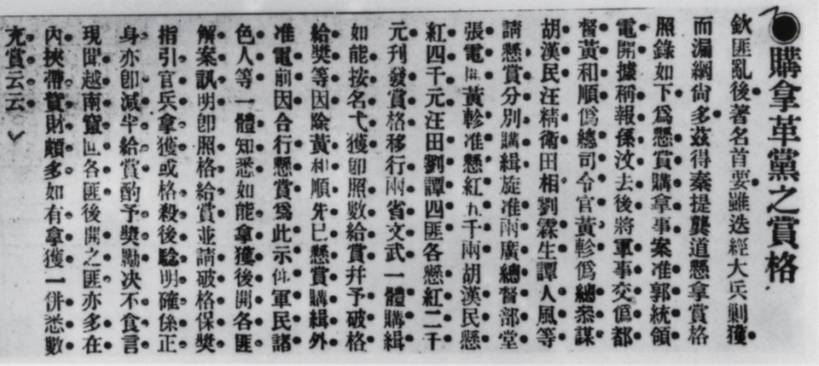 ●購拿革黨之賞格
欽匪亂後著名首要雖迭經大兵剿獲
而漏網尙多茲得秦提龔道懸拿賞格
照錄如下爲懸賞購拿事案准郭統領
電開據稱報孫汶去後將軍事交僞都
督黃和順僞總司令官黃軫僞總叅謀
胡漢民汪精衛田相劉霖生譚人風等
請懸賞分別購緝旋准兩廣總督部堂
張電 黃軫准懸紅九千兩胡漢民懸
紅四千元汪田劉譚四匪各懸紅二千
元刊發賞格移行兩省文武一體購緝
如能按名弋獲卽照數給賞幷予破格
給獎等因除黃和順先已懸賞購緝外
准電前因合行懸賞爲此示仰軍民諸
色人等一體知悉如能拿獲後開各匪
解案訊明卽照格給賞並請破格保獎
指引官兵拿獲或格殺後騐明確係正
身亦卽減半給賞酌予獎勵决不食言
現聞越南竄 各匪後開之匪亦多在
內挾帶貲財頗多如有拿獲一併悉數
充賞云云